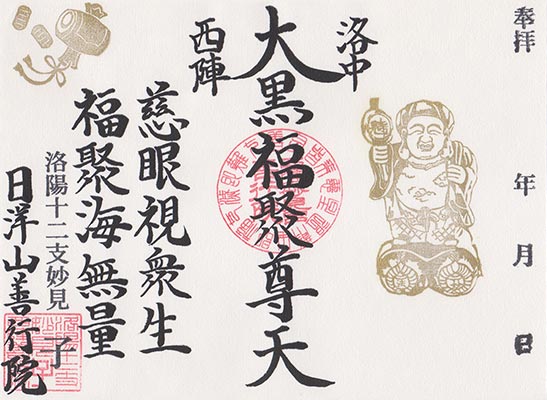 奉拝
年 月 日
洛中
西陣
大黒福聚尊天
慈眼視衆生
福聚海無量
洛陽十二支妙見
子
日洋山善行院